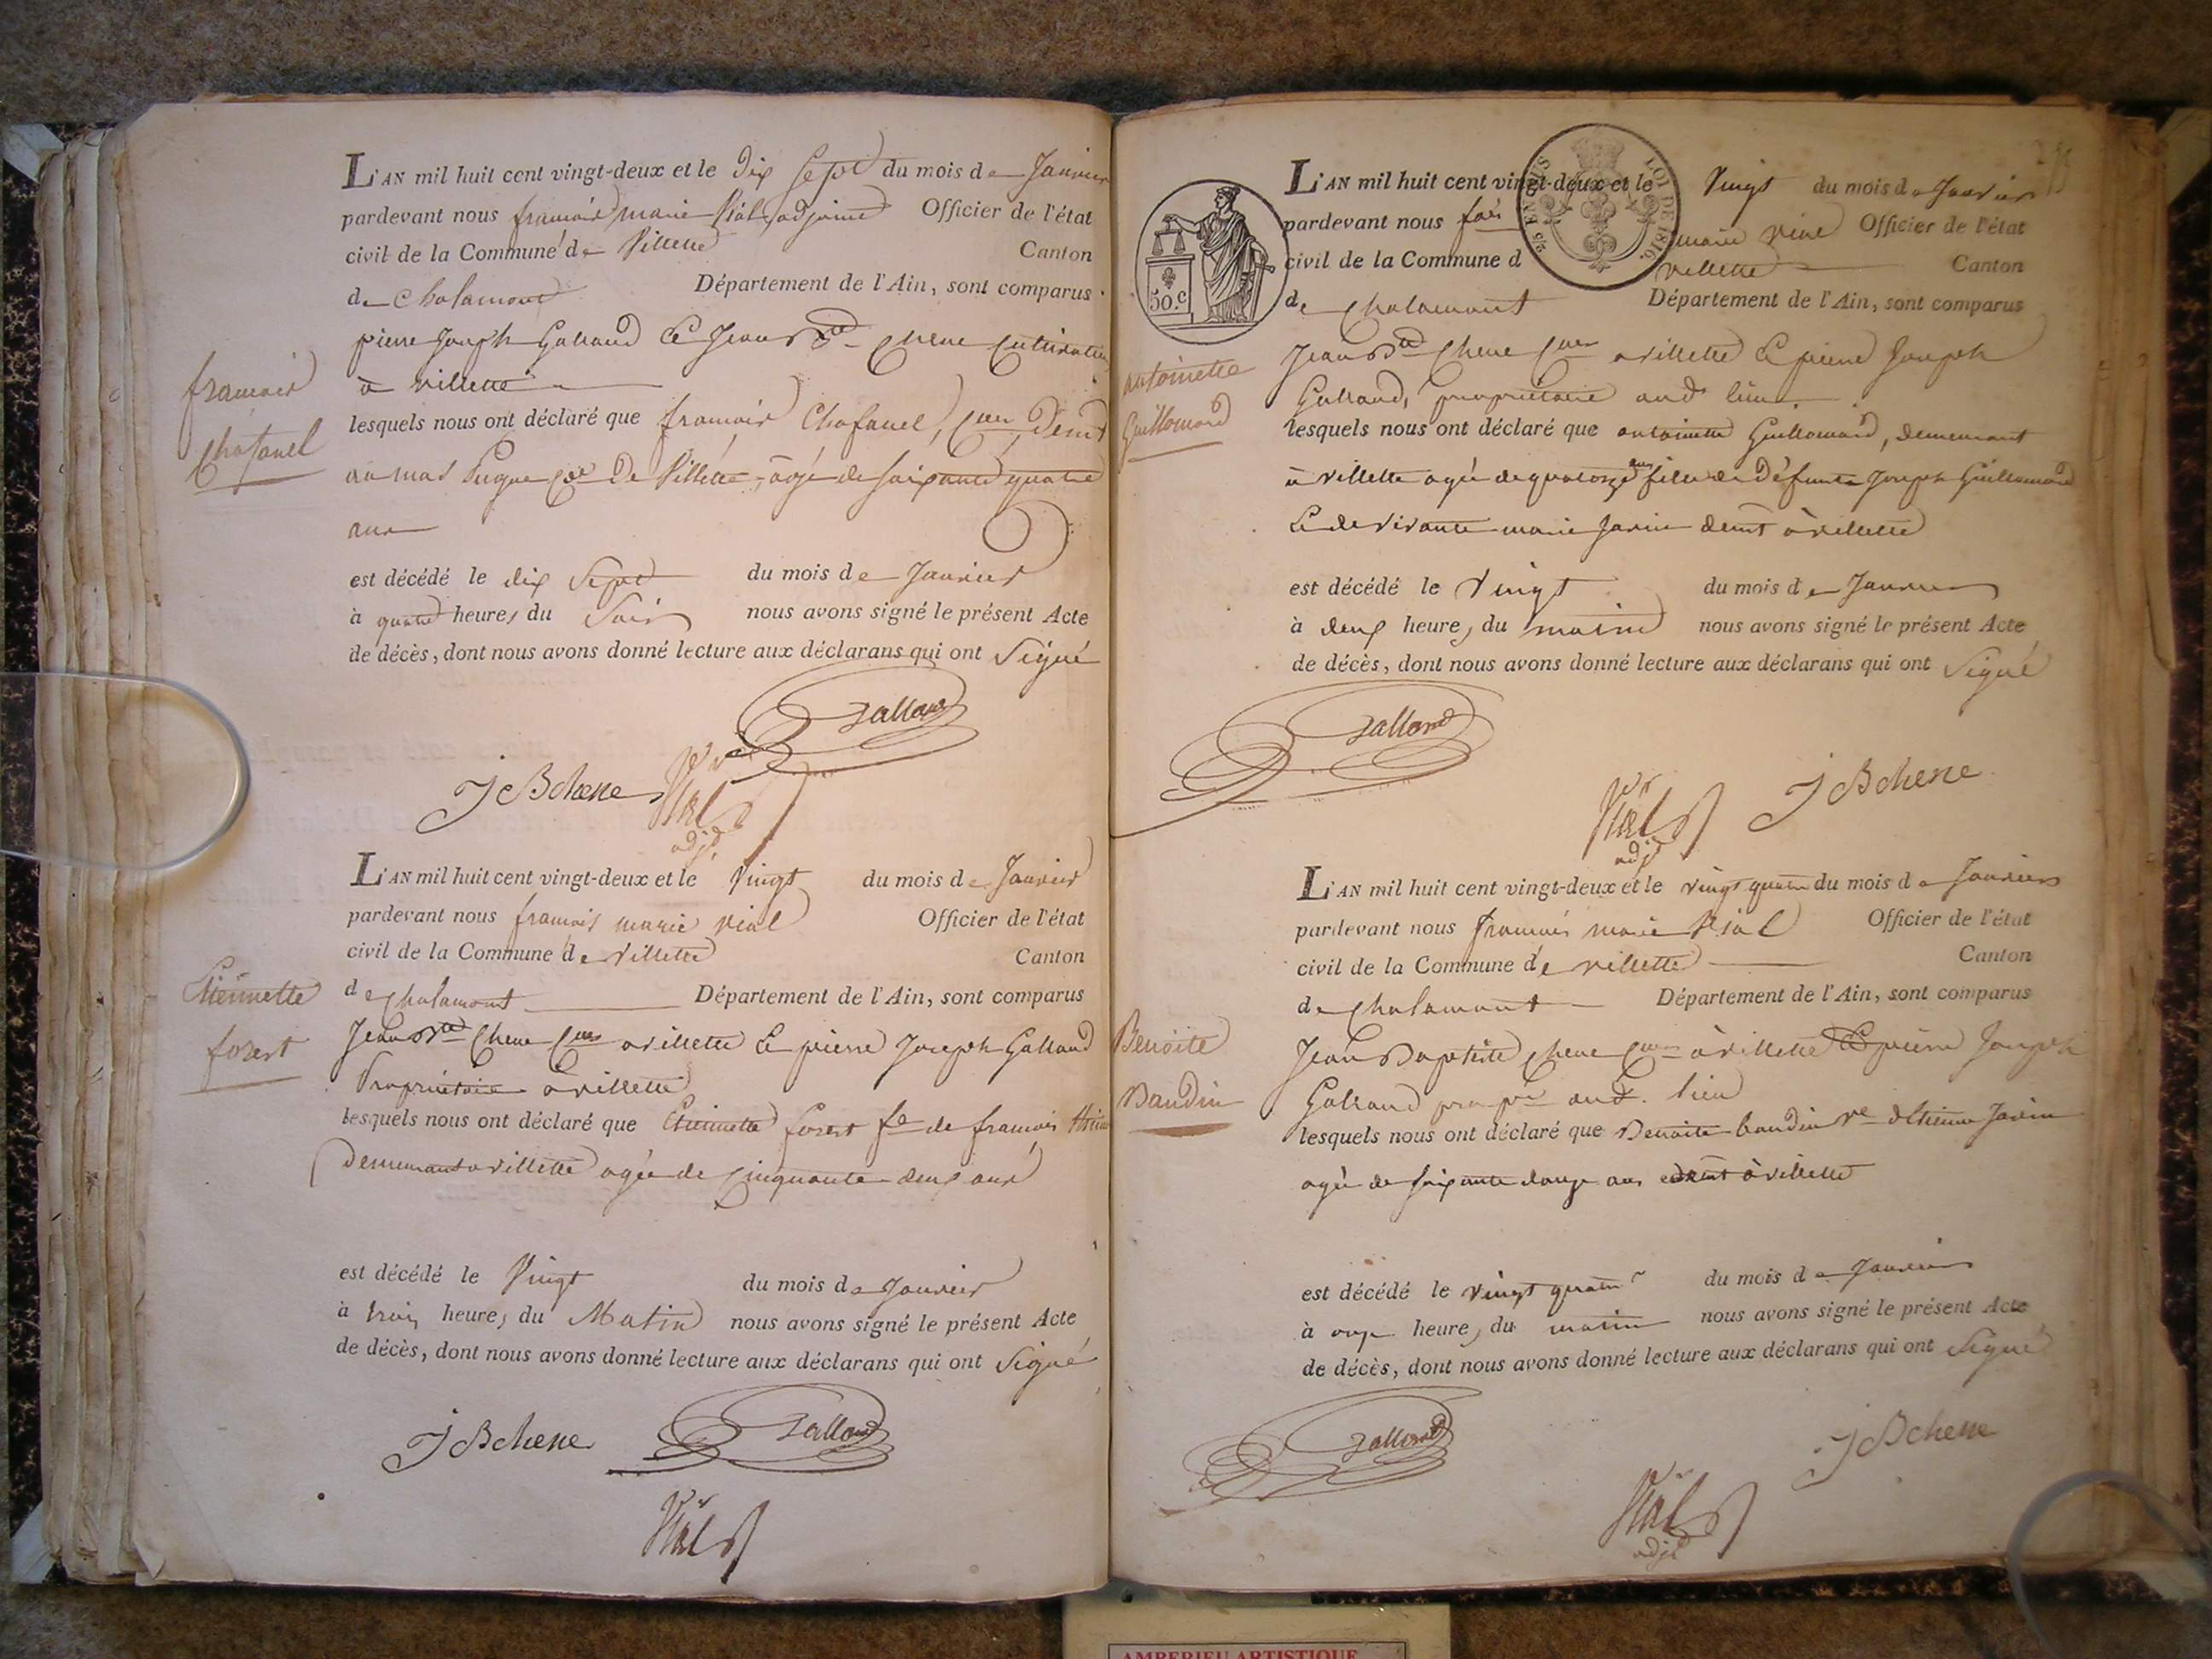 L'AN mil huit cent vingt-deux et le dix sept du mois de Janvier
pardevant nous francois marie Vial, adjoint Officier de l'état
civil de la Commune de Villette Canton
de Chalamont Département de l'Ain, sont comparus
pierre Joseph Galland Et Jean Bte Chene Cultivateurs
à villette
francois
Chafanel
lesquels nous ont déclaré que francois Chafanel, demt
au mas de Villette, âgé de soixante quatre
ans
est décédé le dix Sept du mois de Janvier
à quatre heures du Soir nous avons signé le présent Acte
de décès, dont nous avons donné lecture aux déclarans qui ont Signé
Galland
J B chene Vial
adjt
L'AN mil huit cent vingt-deux et le Vingt du mois de Janvier
pardevant nous francois marie vial Officier de l'état
civil de la Commune de Villette Canton
de Chalamont Département de l'Ain, sont comparus
Etiennette
forest
Jean Bte Chene a villette Et pierre Joseph Galland
Proprietaire a villette
lesquels nous ont déclaré que Etiennette forest fe de francois
Demeurant a villette agée de Cinquante deux ans
est décédé le Vingt du mois de Janvier
à trois heures du Matin nous avons signé le présent Acte
de décès, dont nous avons donné lecture aux déclarans qui ont Signé
J B chene Galland
Vial
L'AN mil huit cent vingt-deux et le Vingt du mois de Janvier
pardevant nous fois marie vial Officier de l'état
civil de la Commune d villette Canton
de Chalamont Département de l'Ain, sont comparus
5/c EN SUS LOI DE 1816.
50.c
antoinette
Guillomard
Jean Bte Chene a villette Et pierre Joseph
Galland, proprietaire aud. lieu
lesquels nous ont déclaré que antoinette Guillomard, demeurant
à villette agée de quatorze ans fille de Défunt Joseph Guillomard
Et de vivante marie Janin demt à villette
est décédé le Vingt du mois de Janvier
à deux heures du matin nous avons signé le présent Acte
de décès, dont nous avons donné lecture aux déclarans qui ont Signé
Galland
Vial J B chene
adjt
L'AN mil huit cent vingt-deux et le vingt quatre du mois de Janvier
pardevant nous francois marie Vial Officier de l'état
civil de la Commune de villette Canton
de Chalamont Département de l'Ain, sont comparus
Benoite
Baudin
Jean Baptiste Chene à villette Et pierre Joseph
Galland propre aud. lieu
lesquels nous ont déclaré que Benoite baudin ve d'Etienne Janin
agée de soixante douze ans demt à villette
est décédé le vingt quatre du mois de Janvier
à onze heures du matin nous avons signé le présent Acte
de décès, dont nous avons donné lecture aux déclarans qui ont Signé
Galland J B chene
Vial
adjt
AMBERIEU ARTISTIQUE